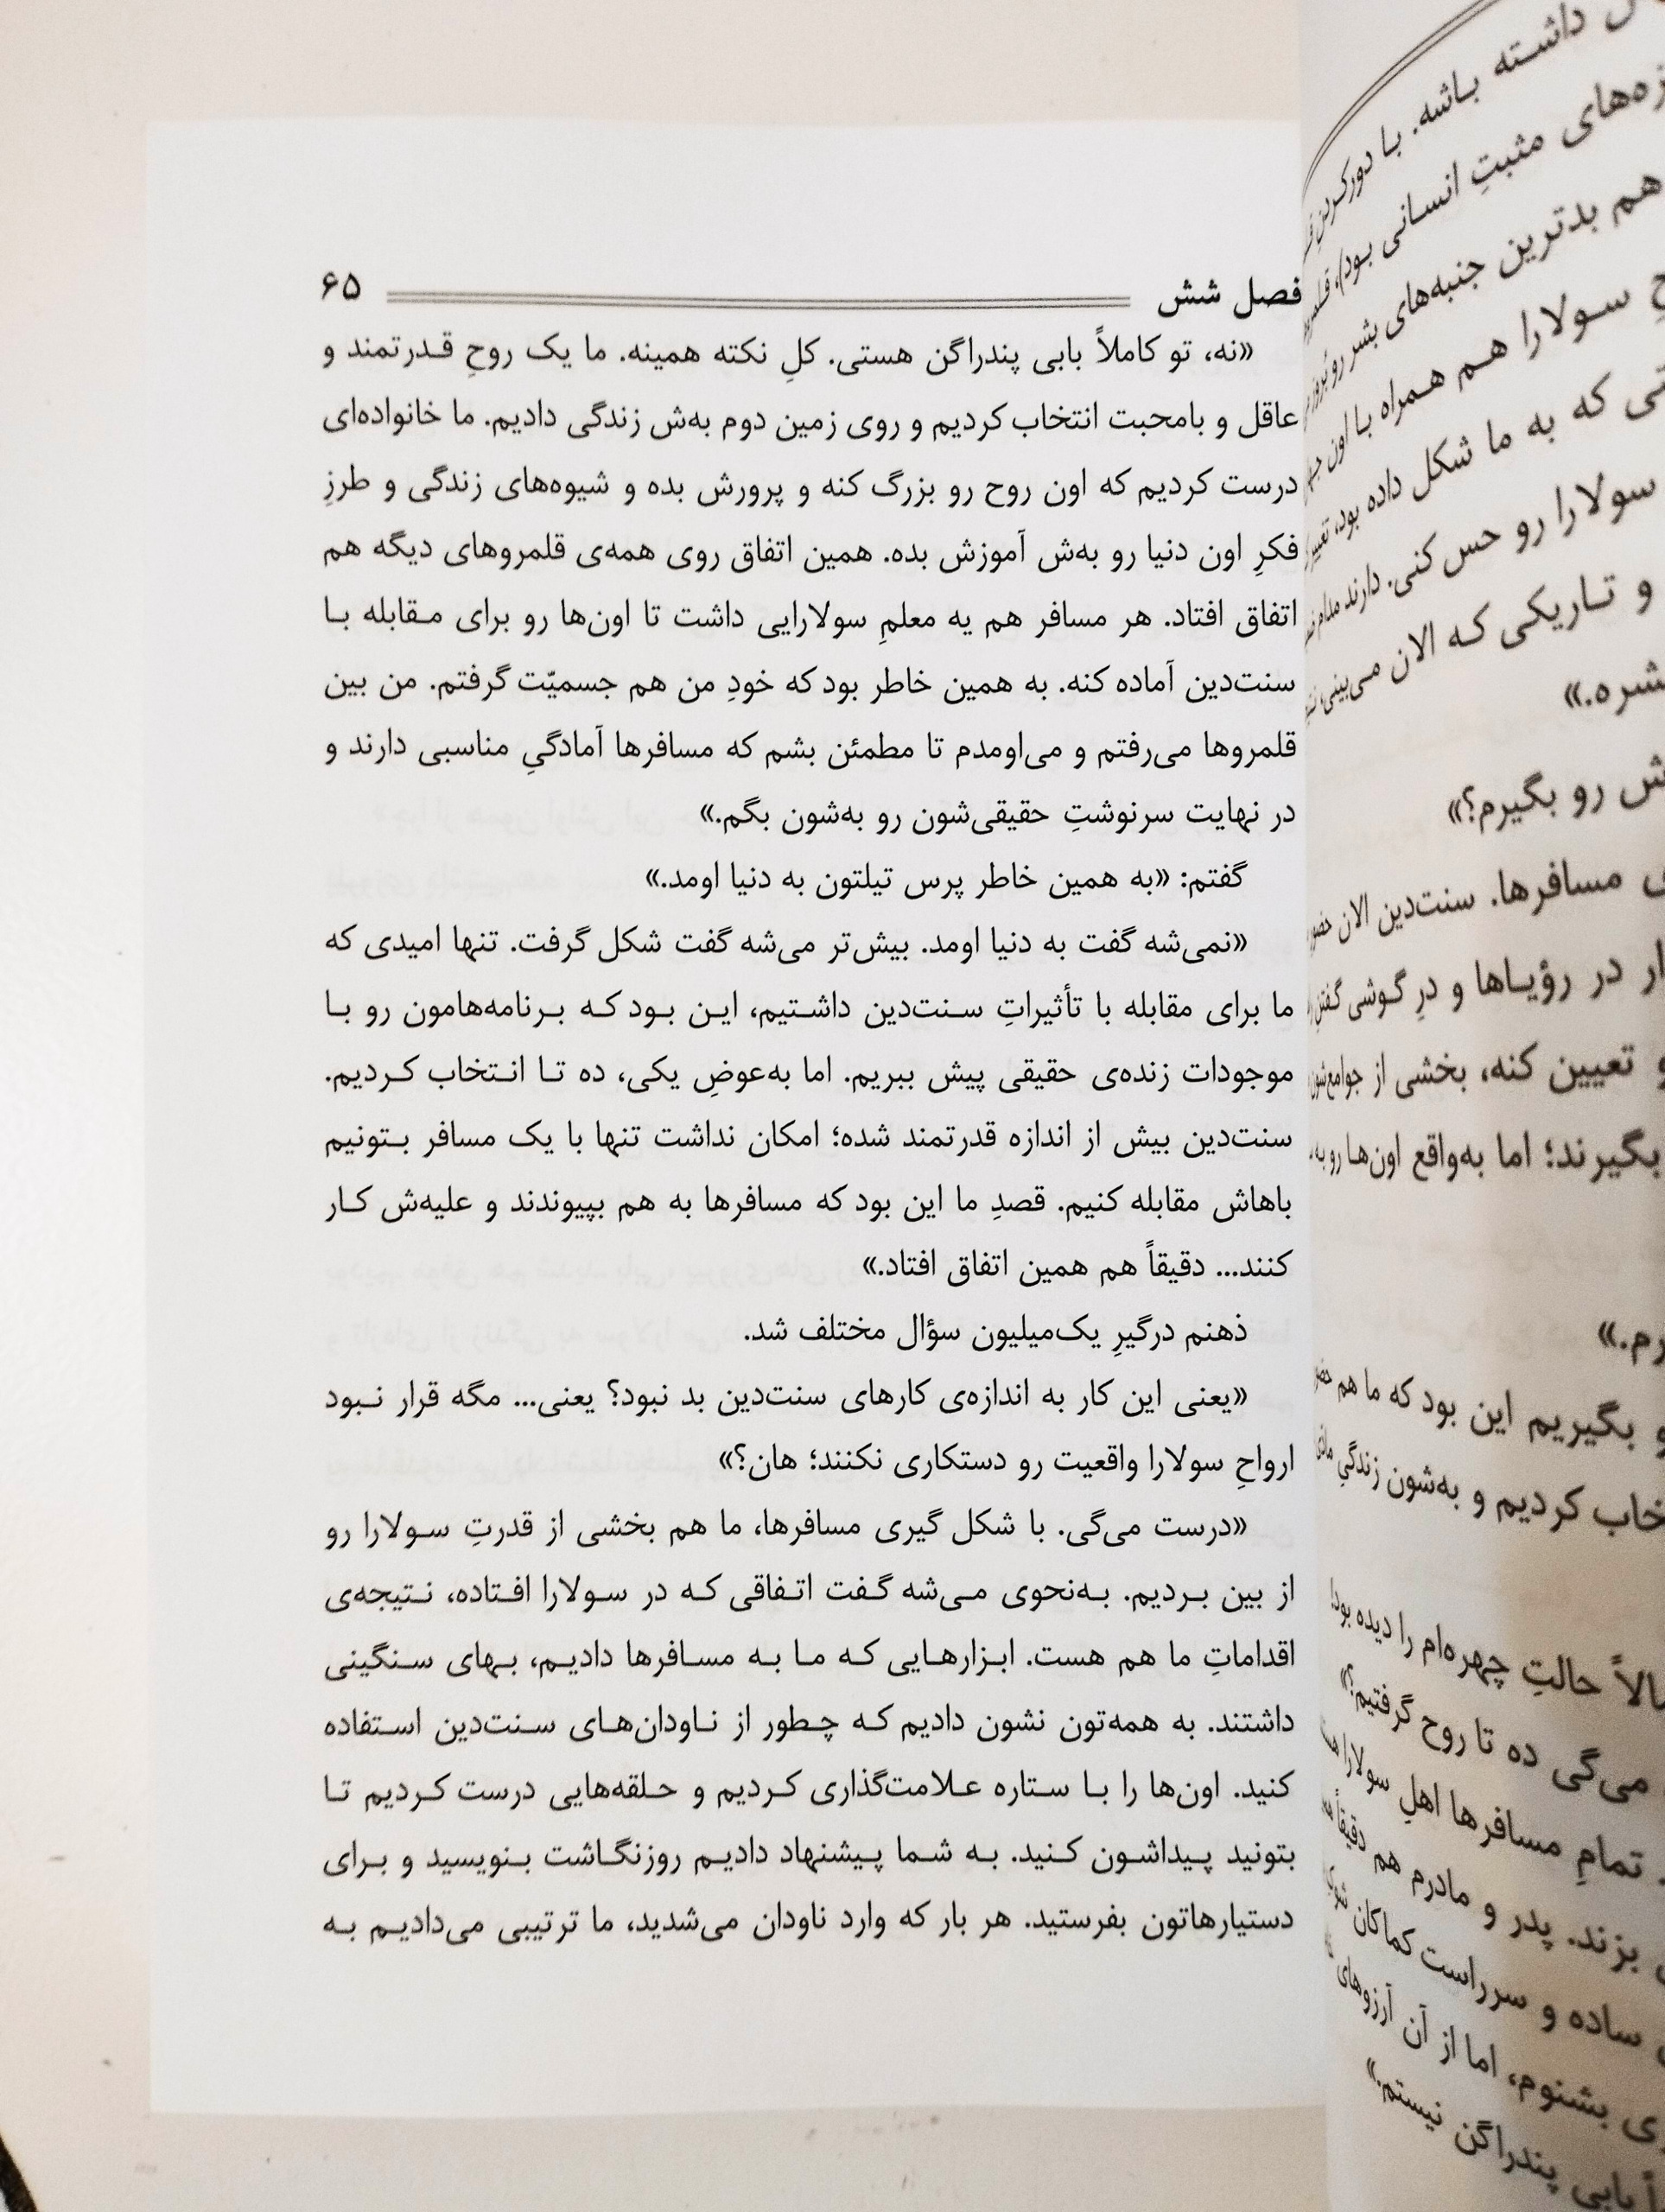 فصل شش ۶۵
«نه، تو کاملاً بابی پندراگن هستی. کلِ نکته همینه. ما یک روحِ قدرتمند و
عاقل و بامحبت انتخاب کردیم و روی زمین دوم به‌ش زندگی دادیم. ما خانواده‌ای
درست کردیم که اون روح رو بزرگ کنه و پرورش بده و شیوه‌های زندگی و طرزِ
فکرِ اون دنیا رو به‌ش آموزش بده. همین اتفاق روی همه‌ی قلمروهای دیگه هم
اتفاق افتاد. هر مسافر هم یه معلمِ سولارایی داشت تا اون‌ها رو برای مقابله با
سنت‌دین آماده کنه. به همین خاطر بود که خودِ من هم جسمیّت گرفتم. من بین
قلمروها می‌رفتم و می‌اومدم تا مطمئن بشم که مسافرها آمادگیِ مناسبی دارند و
در نهایت سرنوشتِ حقیقی‌شون رو به‌شون بگم.»
گفتم: «به همین خاطر پرس تیلتون به دنیا اومد.»
«نمی‌شه گفت به دنیا اومد. بیش‌تر می‌شه گفت شکل گرفت. تنها امیدی که
ما برای مقابله با تأثیراتِ سنت‌دین داشتیم، این بود که برنامه‌هامون رو با
موجودات زنده‌ی حقیقی پیش ببریم. اما به‌عوضِ یکی، ده تا انتخاب کردیم.
سنت‌دین بیش از اندازه قدرتمند شده؛ امکان نداشت تنها با یک مسافر بتونیم
باهاش مقابله کنیم. قصدِ ما این بود که مسافرها به هم بپیوندند و علیه‌ش کار
کنند... دقیقاً هم همین اتفاق افتاد.»
ذهنم درگیرِ یک‌میلیون سؤال مختلف شد.
«یعنی این کار به اندازه‌ی کارهای سنت‌دین بد نبود؟ یعنی... مگه قرار نبود
ارواحِ سولارا واقعیت رو دستکاری نکنند؛ هان؟»
«درست می‌گی. با شکل گیری مسافرها، ما هم بخشی از قدرتِ سولارا رو
از بین بردیم. به‌نحوی می‌شه گفت اتفاقی که در سولارا افتاده، نتیجه‌ی
اقداماتِ ما هم هست. ابزارهایی که ما به مسافرها دادیم، بهای سنگینی
داشتند. به همه‌تون نشون دادیم که چطور از ناودان‌های سنت‌دین استفاده
کنید. اون‌ها را با ستاره علامت‌گذاری کردیم و حلقه‌هایی درست کردیم تا
بتونید پیداشون کنید. به شما پیشنهاد دادیم روزنگاشت بنویسید و برای
دستیارهاتون بفرستید. هر بار که وارد ناودان می‌شدید، ما ترتیبی می‌دادیم به
داشته باشه. با دورکردنِ
مثبتِ انسانی بود)،
هم بدترین جنبه‌های بشر رو
سولارا هم همراه با اون
که به ما شکل داده بود،
سولارا رو حس کنی. دارند
و تاریکی که الان می‌بینی،
رو بگیرم؟»
مسافرها. سنت‌دین الان
در رؤیاها و درِ گوشی
تعیین کنه، بخشی از
بگیرند؛ اما به‌واقع اون‌ها رو
بگیریم این بود که ما هم
کردیم و به‌شون زندگیِ
حالتِ چهره‌ام را دیده بود!
می‌گی ده تا روح گرفتیم؟»
تمامِ مسافرها اهلِ سولارا
بزند. پدر و مادرم هم دقیقاً
ساده و سرراست کماکان
بشنوم، اما از آن آرزوهای
بابی پندراگن نیستم.»